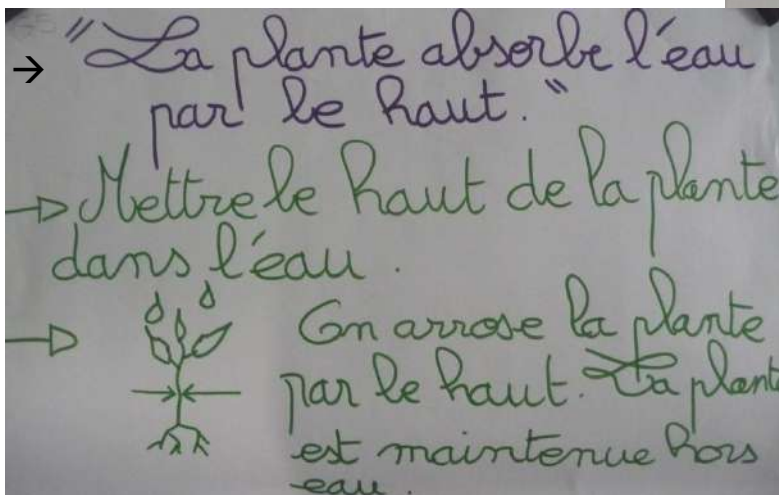 → "La plante absorbe l'eau
par le haut."
→ Mettre le haut de la plante
dans l'eau.
→ On arrose la plante
par le haut. La plante
est maintenue hors
eau.